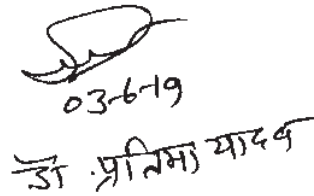 03-6-19
डॉ. प्रतिमा यादव